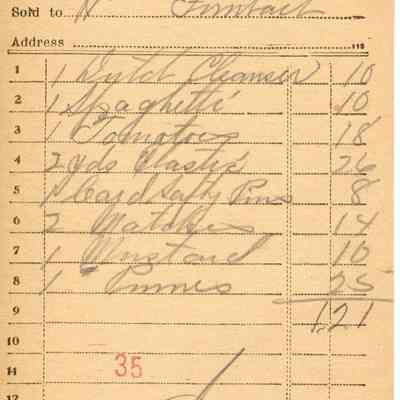 Sold to
Address
1 1 Dutch Cleanser 10
2 1 Spaghetti 10
3 1 Tomatoes 18
4 2 yds Elastic 26
5 1 Card Safty Pins 8
6 2 Matches 14
7 1 Mustard 10
8 1 " Prunes 25
9 1.21
10
11 35
12